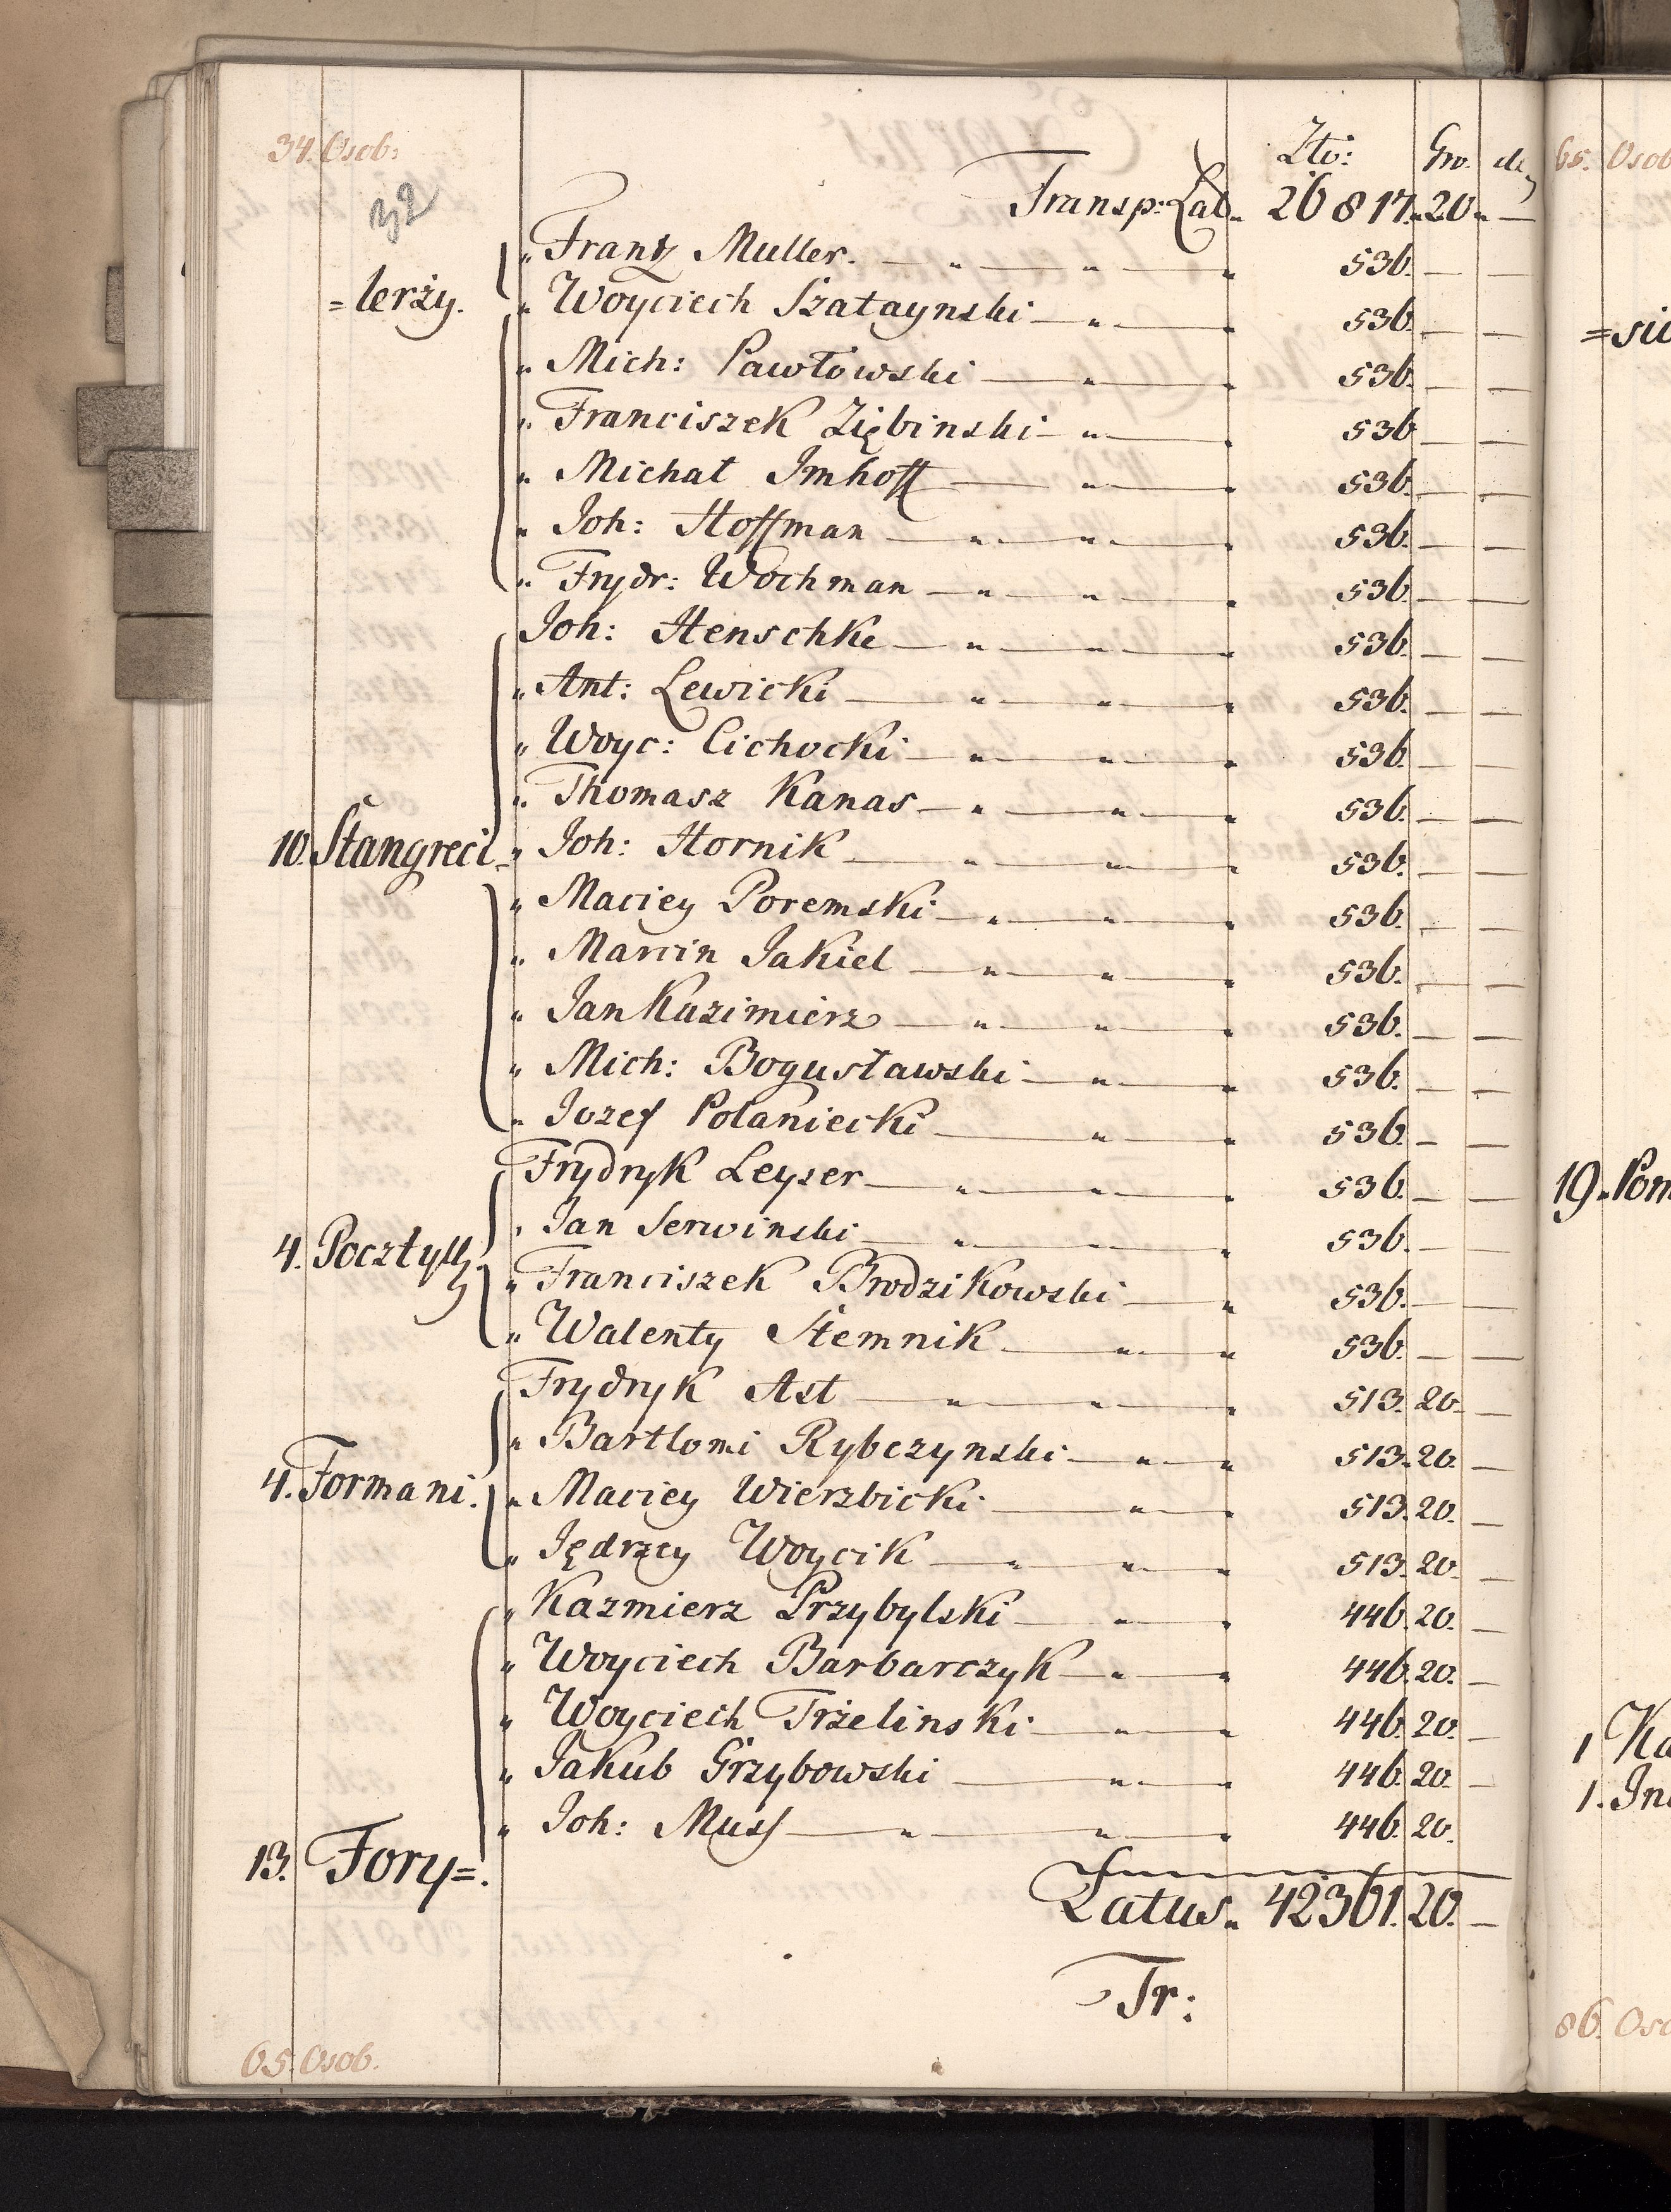 34. Osob: Złti: Gro. de
32
Transp: Lat. 26817. 20. —
" Frantz Muller. — " — " — " 536. — —
= lerży. " Woyciech Szataynski — " — " 536. — —
" Mich: Pawłowski — " — " 536. — —
" Franciszek Ziębinski — " — " 536 — —
" Michał Imhoff — " — " 536. — —
" Joh: Hoffman — " — " — " 536. — —
" Frydr: Wochman — " — " — " 536. — —
Joh: Henschke — " — " — " 536. — —
" Ant: Lewicki — " — " — " 536. — —
" Woyc: Cichocki — " — " — " 536. — —
" Thomasz Kanas — " — " — " 536. — —
10. Stangreci — " Joh: Hornik — " — " — " 536. — —
" Maciey Poremski — " — " — " 536. — —
" Marcin Jakiel — " — " — " 536. — —
" Jan Kazimierz — " — " — " 536. — —
" Mich: Bogusławski — " — " 536. — —
" Jozef Polaniecki — " — " 536. — —
Frydryk Leyser — " — " — " 536. — —
" Jan Serwinski — " — " — " 536. — —
4. " Franciszek Brodzikowski — " 536. — —
" Walenty Stemnik — " — " 536. — —
Frydryk Ast — " — " — " 513. 20. —
" Bartlomi Rybczynski — " — " 513. 20. —
4. Formani. " Maciey Wierzbicki — " — " 513. 20. —
" Jędrzey Woycik — " — " — " 513. 20. —
" Kazmierz Przybylski — " — " 446. 20. —
" Woyciech Barbarczyk — " — " 446. 20. —
" Woyciech Trżelinski — " — " 446. 20. —
" Jakub Grzybowski — " — " 446. 20. —
" Joh: Muss — " — " — " 446. 20.
13. Fory=.
Latus. 42361. 20. —
Tr:
65. Osob.
65. Osob
=sic
19. Pom
1 Ka
1. In
86. Oso